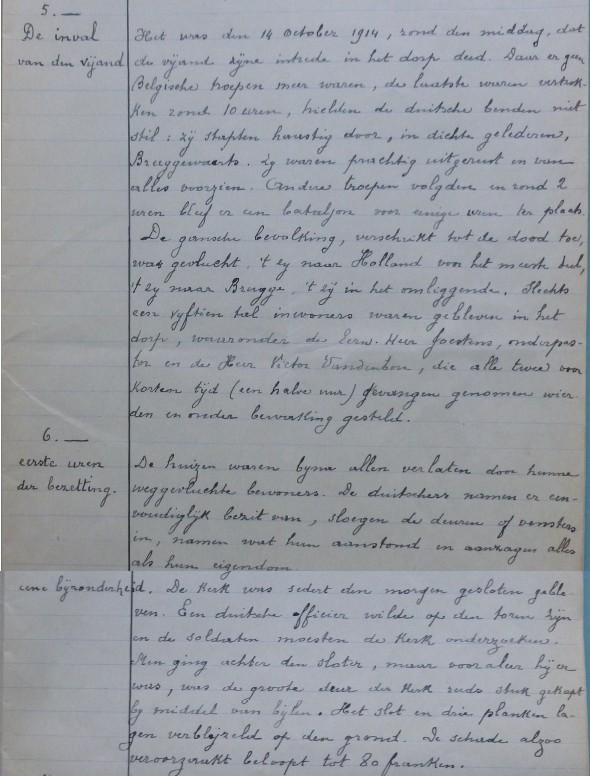 5. —
De inval
van den vijand
Het was den 14 October 1914, rond den middag, dat
de vijand zijne intrede in het dorp deed. Daar er geen
Belgische troepen meer waren, de laatste waren vertrok-
ken rond 10 uren, hielden de duitsche benden niet
stil: zij stapten haastig door, in dichte gelederen,
Bruggewaarts. Zij waren prachtig uitgerust en van
alles voorzien. Andere troepen volgden en rond 2
uren bleef er een bataljon voor eenige uren ter plaats.
De gansche bevolking, verschrikt tot de dood toe,
was gevlucht, 't zij naar Holland voor het meeste deel,
't zij naar Brugge, 't zij in het omliggende. Slechts
een vijftien tal inwoners waren gebleven in het
dorp, waaronder de Eerw. Heer Joostens, onderpas-
tor en de Heer Victor, die alle twee voor
korten tijd (een halve uur) gevangen genomen wier-
den en onder bewaking gesteld.
6. —
eerste uren
der bezetting.
De huizen waren bijna allen verlaten door hunne
weggevluchte bewoners. De duitschers namen er een-
voudiglijk bezit van, sloegen de deuren of vensters
in, namen wat hun aanstond en aanzagen alles
als hun eigendom
eene bijzonderheid. De kerk was sedert den morgen gesloten geble-
ven. Een duitsche officier wilde op den toren zijn
en de soldaten moesten de kerk onderzoeken.
Men ging achter den sloter, maar vooraleer hij er
was, was de groote deur der kerk reeds stuk gekapt
bij middel van bijlen. Het slot en drie planken la-
gen verbrijzeld op den grond. De schade alzoo
veroorzaakt beloopt tot 80 franken.